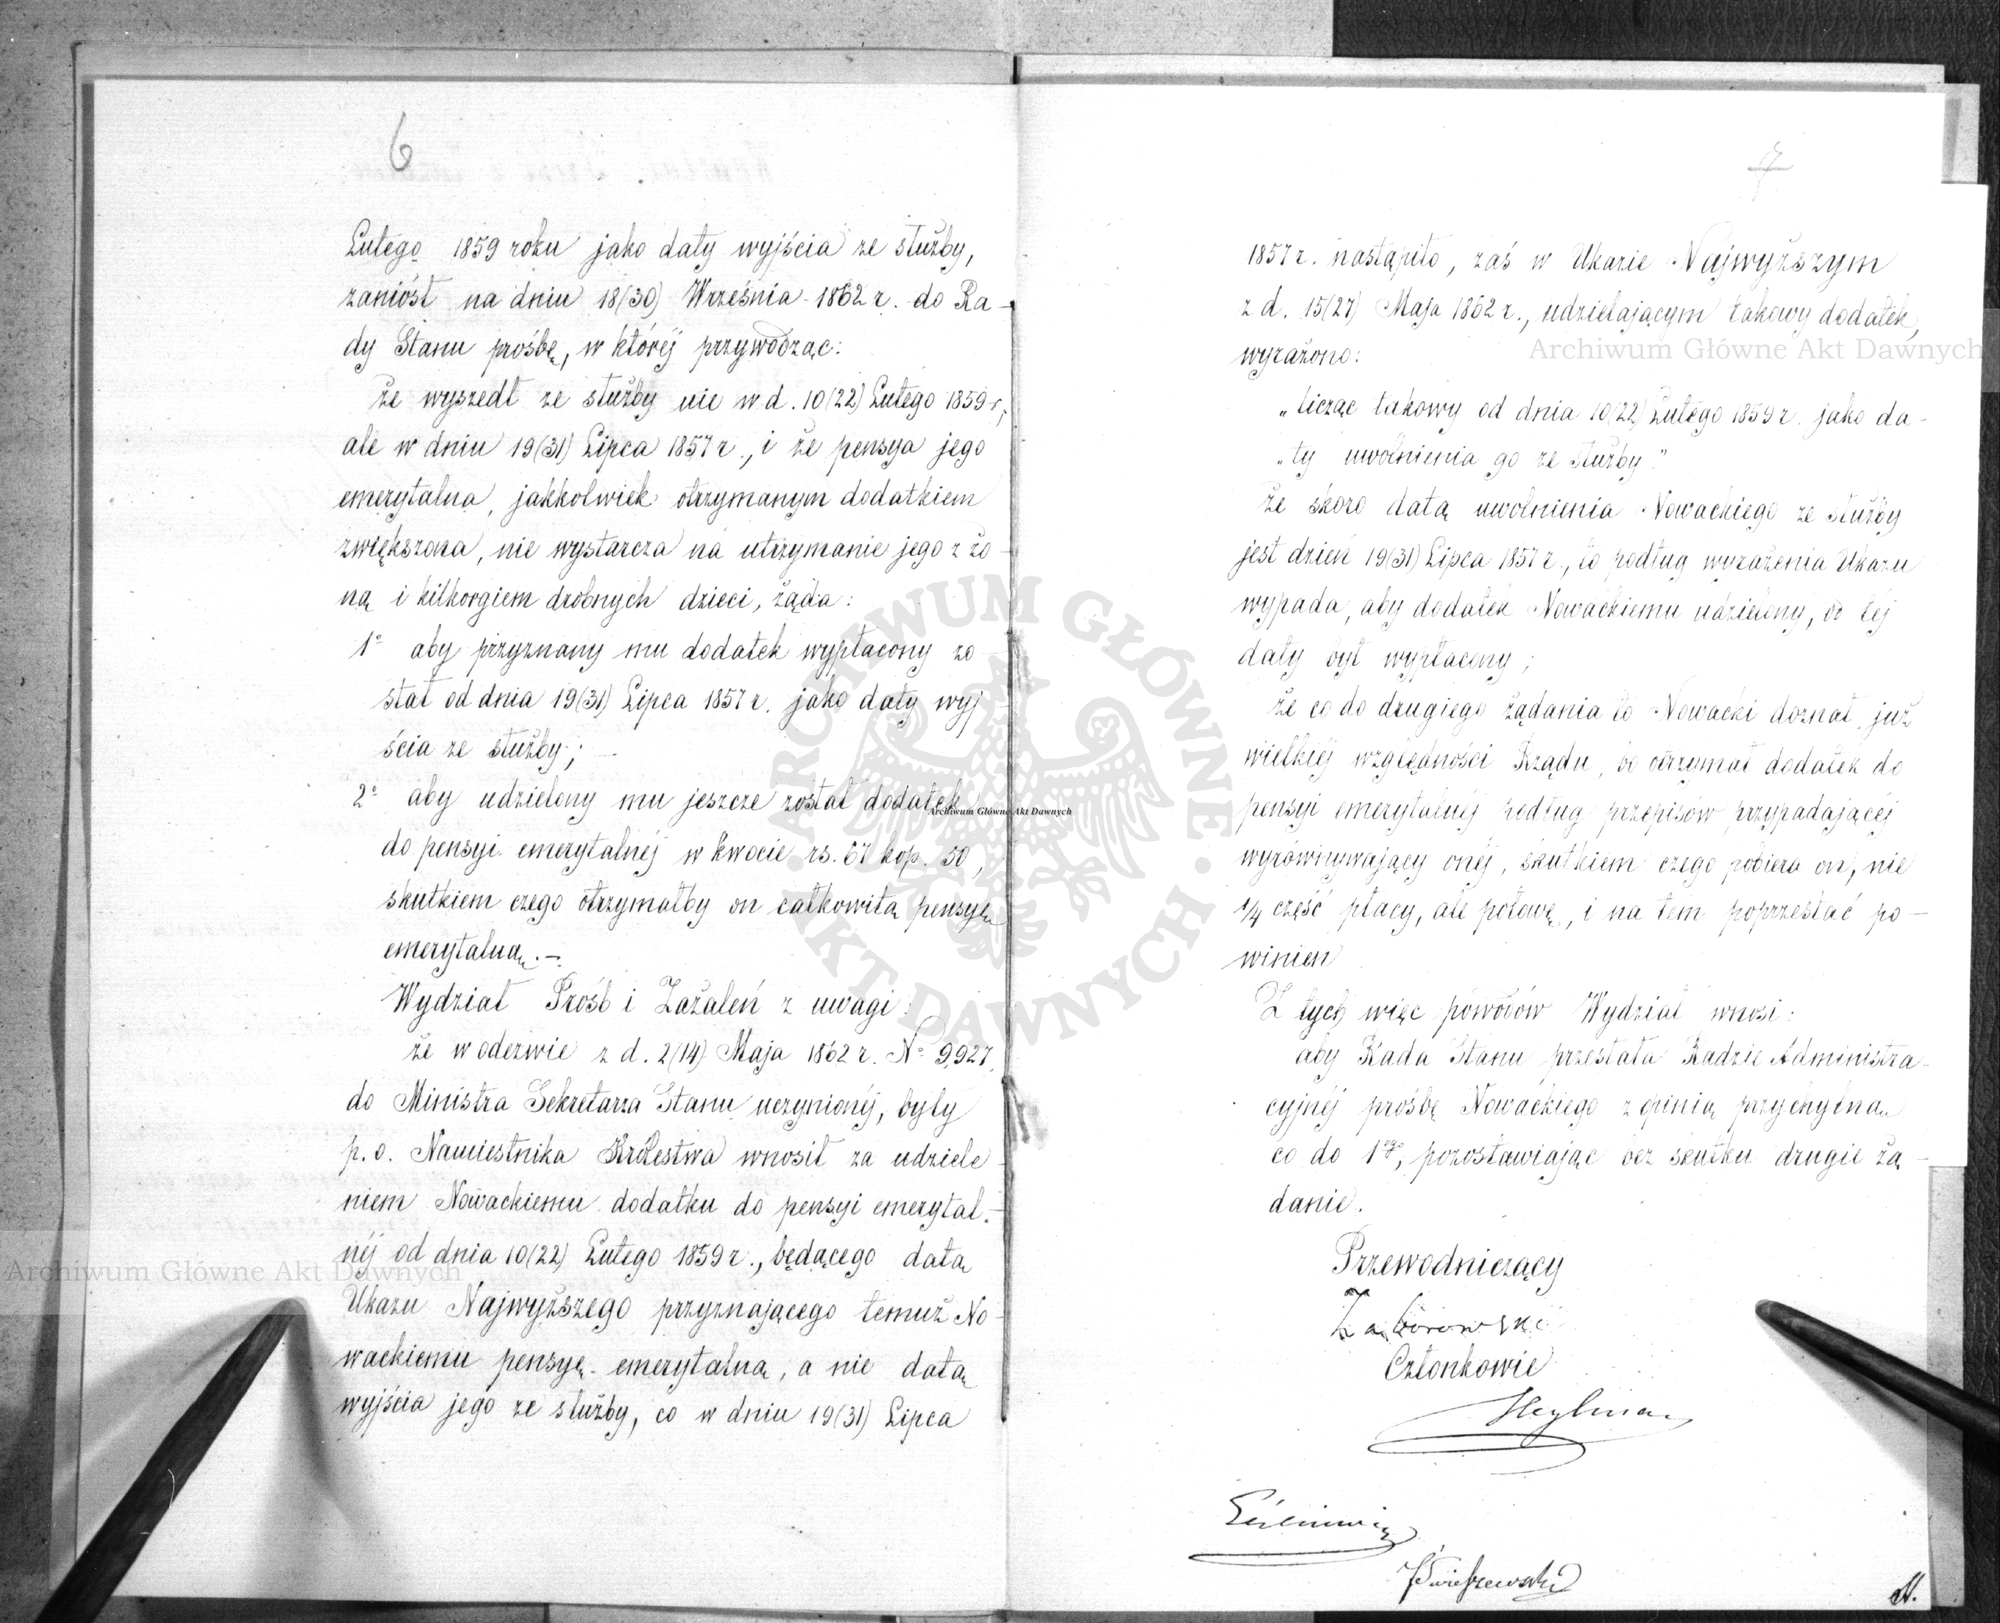 6
Lutego 1859 roku jako daty wyjścia ze służby,
zaniósł na dniu 18(30) Września 1862 r. do Ra-
dy Stanu prośbę, w którėj przywodząc:
że wyszedł ze służby nie w d. 10(22) Lutego 1859 r.,
ale w dniu 19(31) Lipca 1857 r., i że pensya jego
emerytalna, jakkolwiek otrzymanym dodatkiem
zwiększona, nie wystarcza na utrzymanie jego z żo-
ną i kilkorgiem drobnych dzieci, żąda:
1º aby przyznany mu dodatek wypłacony zo-
stał od dnia 19(31) Lipca 1857 r. jako daty wyj-
ścia ze służby;
2º aby udzielony mu jeszcze został dodatek
do pensyi emerytalnėj w kwocie rs. 67 kop. 50,
skutkiem czego otrzymałby on całkowitą pensyę
emerytalną.—
Wydział Prośb i Zażaleń z uwagi:
że w odezwie z d. 2(14) Maja 1862 r. Nº 9,927,
do Ministra Sekretarza Stanu uczynionėj, były
p. o. Namiestnika Królestwa wnosił za udziele-
niem Nowackiemu dodatku do pensyi emerytal-
nėj od dnia 10(22) Lutego 1859 r., będącego datą
Ukazu Najwyższego przyznającego temuż No-
wackiemu pensyę emerytalną, a nie datą
wyjścia jego ze służby, co w dniu 19(31) Lipca
7
1857 r. nastąpiło, zaś w Ukazie Najwyższym
z d. 15(27) Maja 1862 r., udzielającym takowy dodatek,
wyrażono:
„licząc takowy od dnia 10(22) Lutego 1859 r. jako da-
„ty uwolnienia go ze służby."
że skoro datą uwolnienia Nowackiego ze służby
jest dzień 19(31) Lipca 1857 r., to podług wyrażenia Ukazu
wypada, aby dodatek Nowackiemu udzielony, od tėj
daty był wypłacony;
że co do drugiego żądania to Nowacki doznał już
wielkiėj względności Rządu, bo otrzymał dodatek do
pensyi emerytalnėj podług przepisów przypadającėj
wyrównywający onėj, skutkiem czego pobiera on, nie
1/4 część płacy, ale połowę, i na tem poprzestać po-
winien
Z tych więc powodów Wydział wnosi:
aby Rada Stanu przesłała Radzie Administra-
cyjnėj prośbę Nowackiego z opinią przychylną
co do 1go, pozostawiając bez skutku drugie żą-
danie.
Przewodniczący
Zaborowski
Członkowie
Heylman
Archiwum Główne Akt Dawnych
Archiwum Główne Akt Dawnych
Archiwum Główne Akt Dawnych
ARCHIWUM GŁÓWNE
AKT DAWNYCH